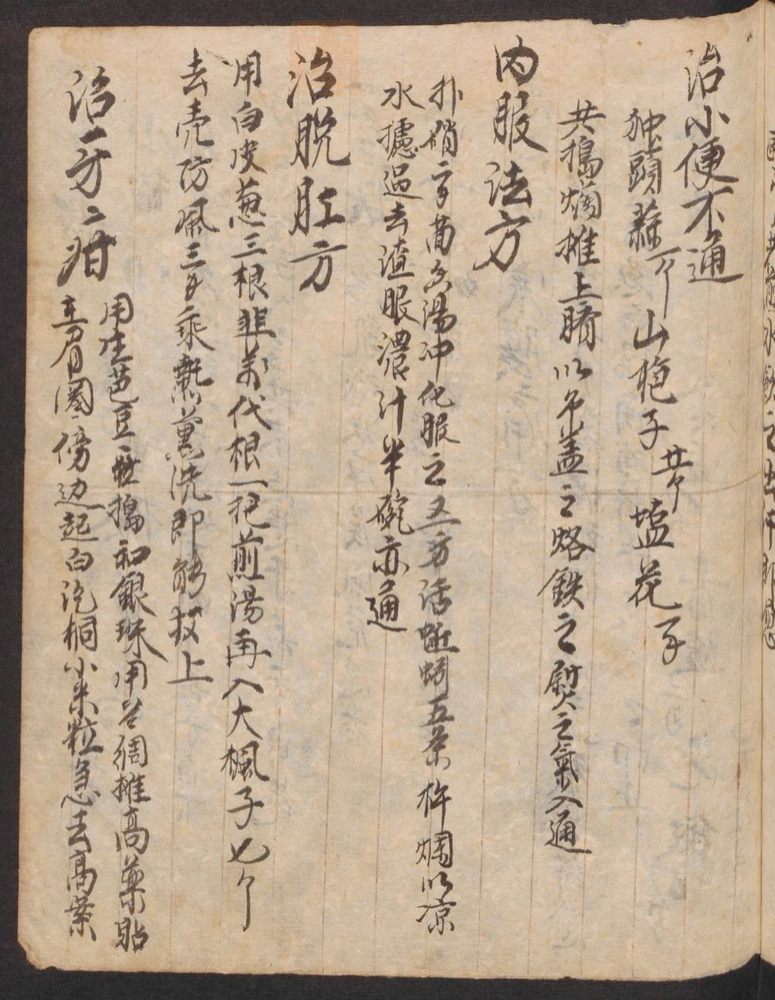 治小便不通
独頭蒜一个山枙子廿个塩花一子
共搗爛摊上臍以布盖之烙鉄之熨之氣入通
内服法方
朴硝 茴 湯冲化服之又方活蚯蚓五条杵爛以凉
水攄過去渣服濃汁半碗亦通
治脫肛方
用白皮葱三根韭菜代根一把煎湯再入大楓子七个
去壳防風三子乘熱薰洗即能收上
治一方二疳
用生芭豆一粒搗和銀珠用 摊高藥貼
眉 傍边起白泡桐小米粒急去高藥